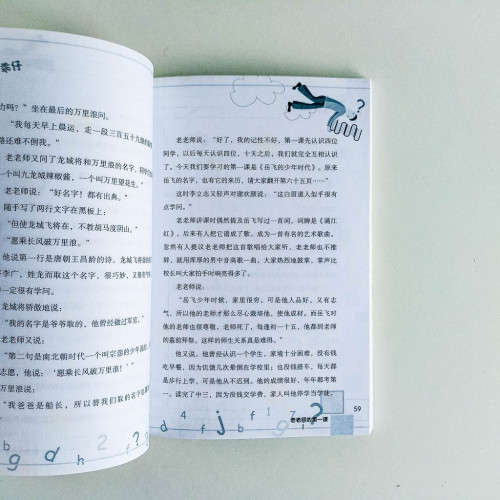 力吗？”坐在最后的万里浪问。
“我每天早上晨运，走一段三百五十九
路还难不倒我。”
老老师又问了龙城将和万里浪的名字，同学
一个叫九龙城辣椒酱，一个叫万里望花生。”
老老师说：“好名字！都有出典。”
随手写了两行文字在黑板上：
“但使龙城飞将在，不教胡马度阴山。”
“愿乘长风破万里浪。”
他说第一行是唐朝王昌龄的诗。龙城飞将
李广，姓龙而取这个名字，很巧妙，又
一定很有学问。
龙城将骄傲地说：
“我的名字是爷爷取的，他曾经做过军官。”
老老师又说：
“第二句是南北朝时代一个叫宗悫的少年
志愿，他说：‘愿乘长风破万里浪！’”
“我爸爸是船长，所以替我们取的名字
b g d h ?
老老师说：“好了，我的记性不好，第一课先认识四位
同学，以后每天认识四位，十天之后，我们就完全互相认识
了。今天我们要学习的第一课是《岳飞的少年时代》。原来
岳飞的名字，也有它的来历，请大家翻开第六十五页……”
这时李立志又轻声对谢欢颜说：“这白眉道人似乎很有
点学问。”
老老师讲课时偶然提及岳飞写过一首词，词牌是《满江
红》，后来有人把它谱成了歌，成为一首有名的艺术歌曲。
忽然有人提议老老师把这首歌唱给大家听，老老师也不推
辞，就用浑厚的男中音高歌一曲，大家热烈地鼓掌，掌声比
校长叫大家拍手时响亮得多了。
老老师说：
“岳飞少年时候，家里很穷，可是他人品好，又有志
气，所以他的老师才那么尽心栽培他，使他成材。而岳飞对
他的老师也很尊敬，老师死了，每逢初一十五，他都到老师
的墓前拜祭，这样的师生关系真是难得。”
他又说，他曾经认识一个学生，家境十分困难，没有钱
吃早餐，因为饥饿几次晕倒在学校里；也没钱搭车，每天都
是步行上学，可是他从不迟到。他的成绩很好，年年都考第
一。读完了中三，因为没钱交学费，家人叫他停学当学徒，
d 4 f j b f 1 7 2
59
老老师的第一课